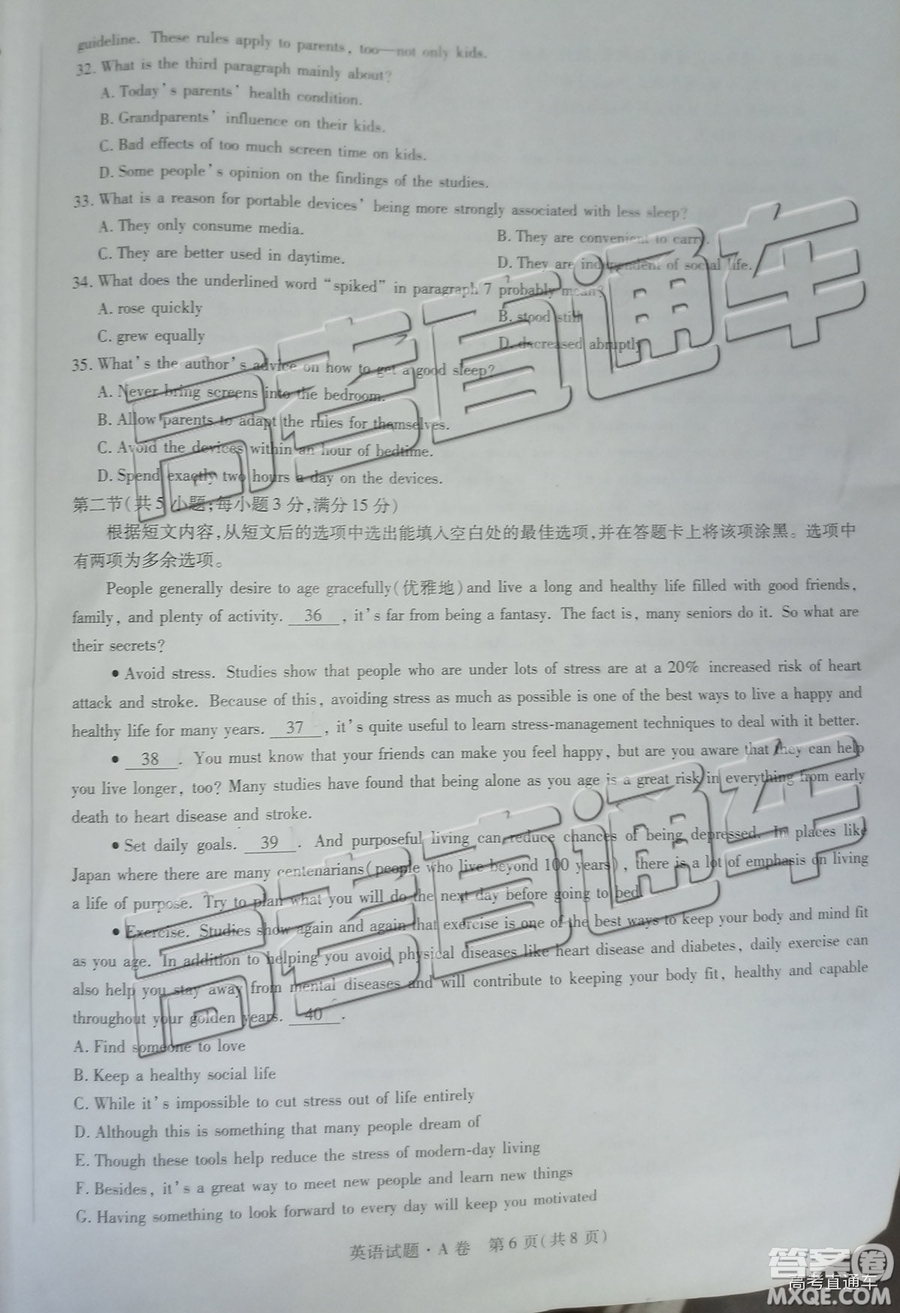 guideline. These rules apply to parents, too—not only kids.
32. What is the third paragraph mainly about?
A. Today's parents' health condition.
B. Grandparents' influence on their kids.
C. Bad effects of too much screen time on kids.
D. Some people's opinion on the findings of the studies.
33. What is a reason for portable devices' being more strongly associated with less sleep?
A. They only consume media.
B. They are convenient to carry.
C. They are better used in daytime.
D. They are independent of social life.
34. What does the underlined word "spiked" in paragraph 7 probably mean?
A. rose quickly
B. stood still
C. grew equally
D. decreased abruptly
35. What's the author's advice on how to get a good sleep?
A. Never bring screens into the bedroom.
B. Allow parents to adapt the rules for themselves.
C. Avoid the devices within an hour of bedtime.
D. Spend exactly two hours a day on the devices.
第二节(共5小题;每小题3分,满分15分)
根据短文内容,从短文后的选项中选出能填入空白处的最佳选项,并在答题卡上将该项涂黑。选项中
有两项为多余选项。
People generally desire to age gracefully(优雅地)and live a long and healthy life filled with good friends,
family, and plenty of activity. 36 , it's far from being a fantasy. The fact is, many seniors do it. So what are
their secrets?
• Avoid stress. Studies show that people who are under lots of stress are at a 20% increased risk of heart
attack and stroke. Because of this, avoiding stress as much as possible is one of the best ways to live a happy and
healthy life for many years. 37 , it's quite useful to learn stress-management techniques to deal with it better.
• 38 . You must know that your friends can make you feel happy, but are you aware that they can help
you live longer, too? Many studies have found that being alone as you age is a great risk in everything from early
death to heart disease and stroke.
• Set daily goals. 39 . And purposeful living can reduce chances of being depressed. In places like
Japan where there are many centenarians(people who live beyond 100 years), there is a lot of emphasis on living
a life of purpose. Try to plan what you will do the next day before going to bed.
• Exercise. Studies show again and again that exercise is one of the best ways to keep your body and mind fit
as you age. In addition to helping you avoid physical diseases like heart disease and diabetes, daily exercise can
also help you stay away from mental diseases and will contribute to keeping your body fit, healthy and capable
throughout your golden years. 40 .
A. Find someone to love
B. Keep a healthy social life
C. While it's impossible to cut stress out of life entirely
D. Although this is something that many people dream of
E. Though these tools help reduce the stress of modern-day living
F. Besides, it's a great way to meet new people and learn new things
G. Having something to look forward to every day will keep you motivated
英语试题·A卷 第6页(共8页)
高考直通车
高考直通车
答案圈
高考直通车
MXQE.COM